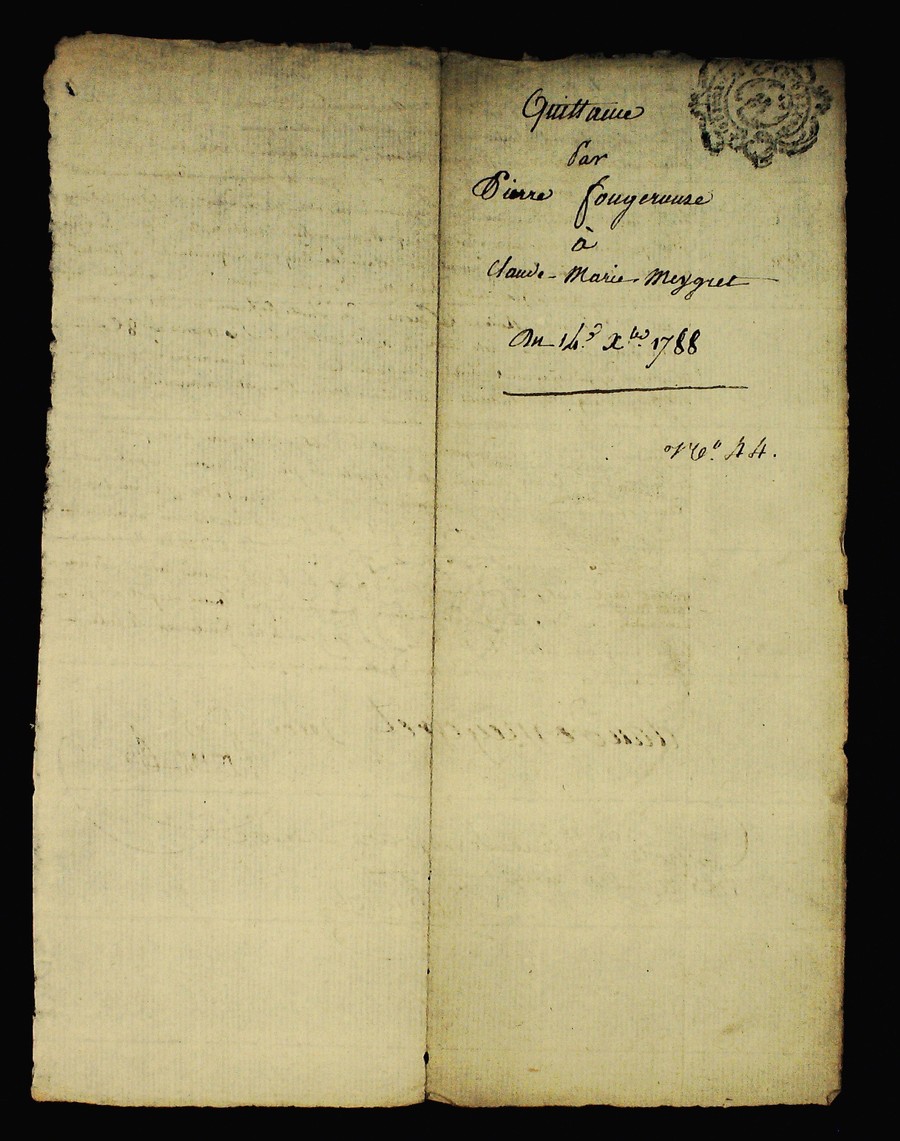 Quittance
Par
Pierre fougereuse
à
Claude-Marie-Meygret
Du 14.e Xbre 1788
N.o 44.